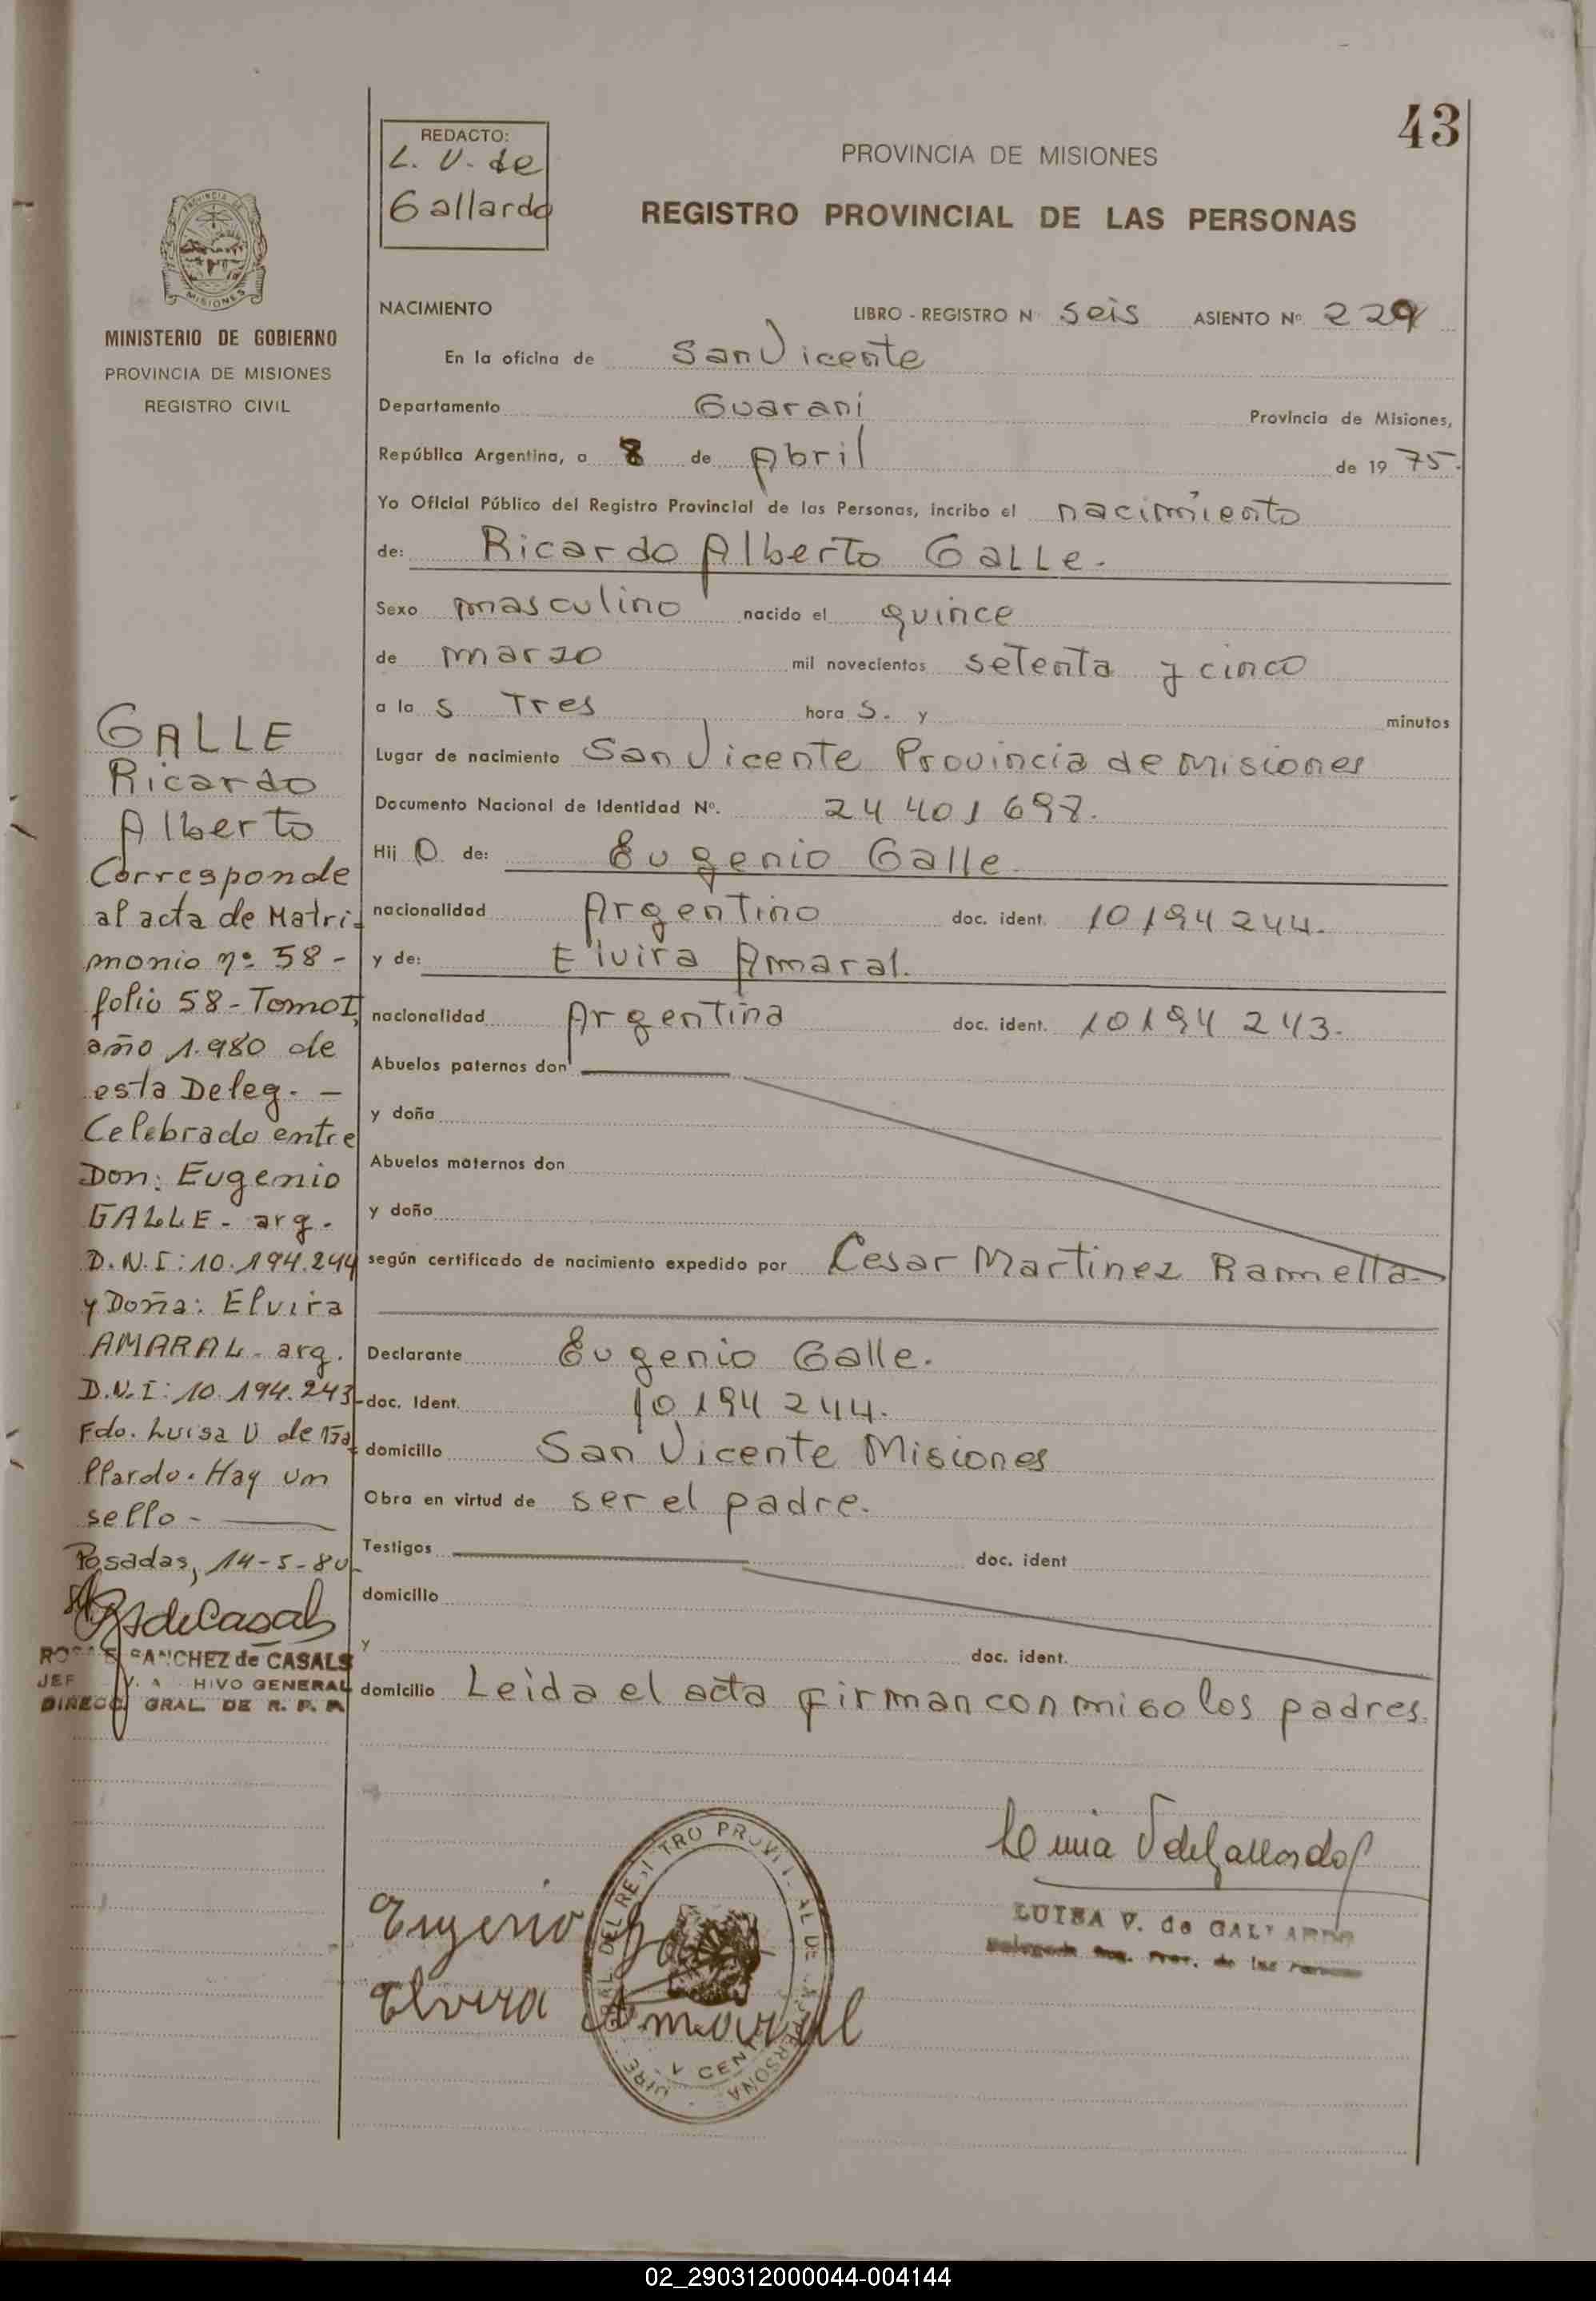 43
REDACTO:
L. V. de
Gallardo
PROVINCIA DE MISIONES
REGISTRO PROVINCIAL DE LAS PERSONAS
PROVINCIA DE
MISIONES
MINISTERIO DE GOBIERNO
PROVINCIA DE MISIONES
REGISTRO CIVIL
NACIMIENTO LIBRO - REGISTRO N seis ASIENTO Nº 229
En la oficina de San Vicente
Departamento Guarani Provincia de Misiones,
República Argentina, a 8 de Abril de 19 75.
Yo Oficial Público del Registro Provincial de las Personas, incribo el nacimiento
de: Ricardo Alberto Galle.
Sexo masculino nacido el quince
de marzo mil novecientos setenta y cinco
a la s Tres hora s. y minutos
Lugar de nacimiento San Vicente Provincia de Misiones
Documento Nacional de Identidad Nº. 24 401 697.
Hij o de: Eugenio Galle
nacionalidad Argentino doc. ident. 10 194 244.
y de: Elvira Amaral.
nacionalidad Argentina doc. ident. 10 194 243.
Abuelos paternos don
y doña
Abuelos maternos don
y doña
según certificado de nacimiento expedido por Cesar Martinez Ramella
Declarante Eugenio Galle.
doc. Ident. 10 194 244.
domicilio San Vicente Misiones
Obra en virtud de ser el padre.
Testigos doc. ident
domicilio
y doc. ident.
domicilio Leida el acta firman conmigo los padres.
GALLE
Ricardo
Alberto
Corresponde
al acta de Matri-
monio nº 58 -
folio 58 - Tomo I,
año 1.980 de
esta Deleg. -
Celebrado entre
Don: Eugenio
GALLE - arg.
D.N.I: 10.194.244
y Doña: Elvira
AMARAL - arg.
D.N.I: 10.194.243-
Fdo. Luisa V de Ga
llardo. Hay un
sello -
Posadas, 14-5-80
SANCHEZ de CASALS
HIVO GENERAL
GRAL. DE R. P. P.
Eugenio
Elvira Amaral
LUISA V. de GALLARDO
02_290312000044-004144